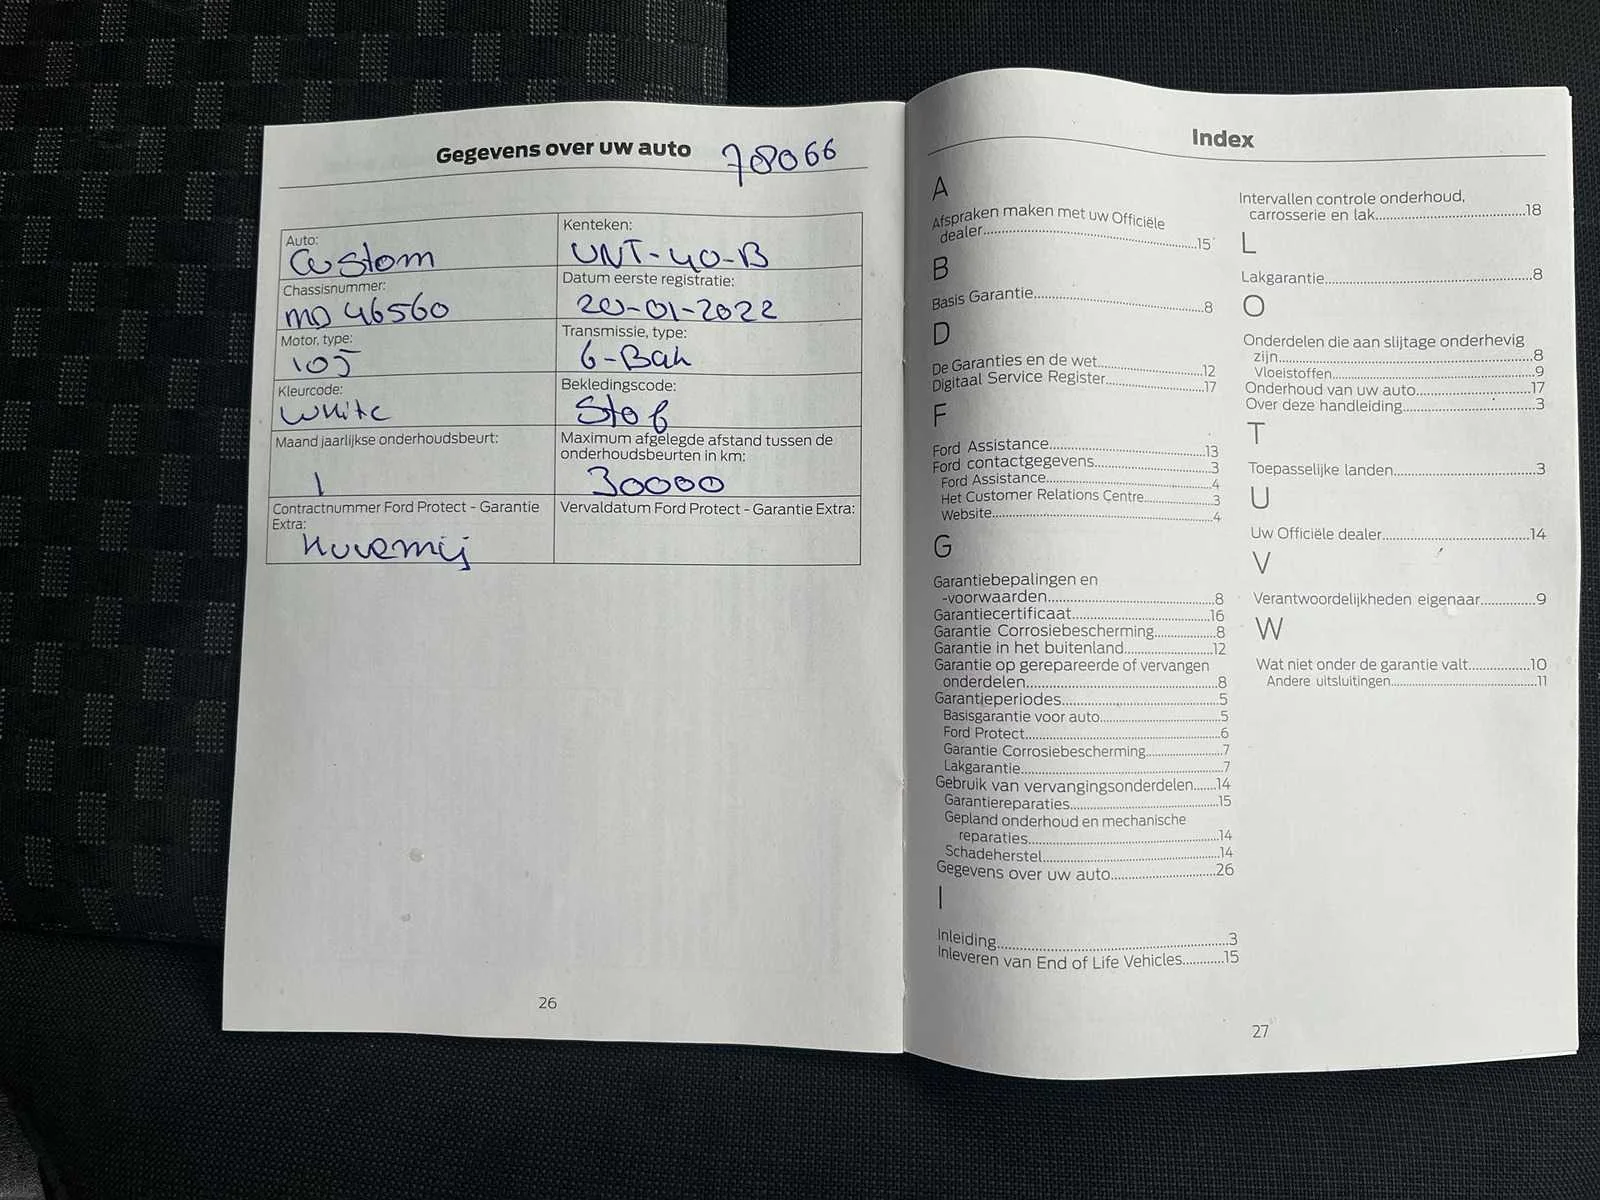 Gegevens over uw auto 78066
Auto: Kenteken:
Custom VNT-40-B
Chassisnummer: Datum eerste registratie:
MD 46560 20-01-2022
Motor, type: Transmissie, type:
105 6-Bak
Kleurcode: Bekledingscode:
White Stof
Maand jaarlijkse onderhoudsbeurt: Maximum afgelegde afstand tussen de
onderhoudsbeurten in km:
1 30000
Contractnummer Ford Protect - Garantie Vervaldatum Ford Protect - Garantie Extra:
Extra:
26
Index
A
Afspraken maken met uw Officiële
dealer.....15
B
Basis Garantie.....8
D
De Garanties en de wet.....12
Digitaal Service Register.....17
F
Ford Assistance.....13
Ford contactgegevens.....3
Ford Assistance.....4
Het Customer Relations Centre.....3
Website.....4
G
Garantiebepalingen en
-voorwaarden.....8
Garantiecertificaat.....16
Garantie Corrosiebescherming.....8
Garantie in het buitenland.....12
Garantie op gerepareerde of vervangen
onderdelen.....8
Garantieperiodes.....5
Basisgarantie voor auto.....5
Ford Protect.....6
Garantie Corrosiebescherming.....7
Lakgarantie.....7
Gebruik van vervangingsonderdelen.....14
Garantiereparaties.....15
Gepland onderhoud en mechanische
reparaties.....14
Schadeherstel.....14
Gegevens over uw auto.....26
I
Inleiding.....3
Inleveren van End of Life Vehicles.....15
Intervallen controle onderhoud,
carrosserie en lak.....18
L
Lakgarantie.....8
O
Onderdelen die aan slijtage onderhevig
zijn.....8
Vloeistoffen.....9
Onderhoud van uw auto.....17
Over deze handleiding.....3
T
Toepasselijke landen.....3
U
Uw Officiële dealer.....14
V
Verantwoordelijkheden eigenaar.....9
W
Wat niet onder de garantie valt.....10
Andere uitsluitingen.....11
27